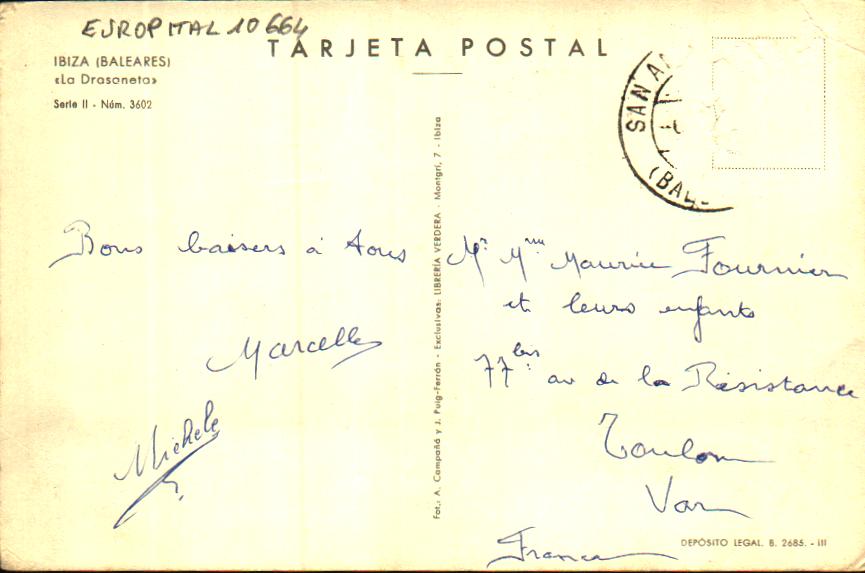 EUROPITAL 10664
TARJETA POSTAL
IBIZA (BALEARES)
«La Drasoneta»
Serie II - Núm. 3602
SAN A
(BAL
Bons baisers à tous
Marcelle
Michele
Fot.: A. Campañá y J. Puig-Ferrán - Exclusivas: LIBRERÍA VERDERA - Montgrí, 7 - Ibiza
Mr Mme Maurice Fournier
et leurs enfants
77 bis av de la Résistance
Toulon
Var
France
DEPÓSITO LEGAL. B. 2685. - III